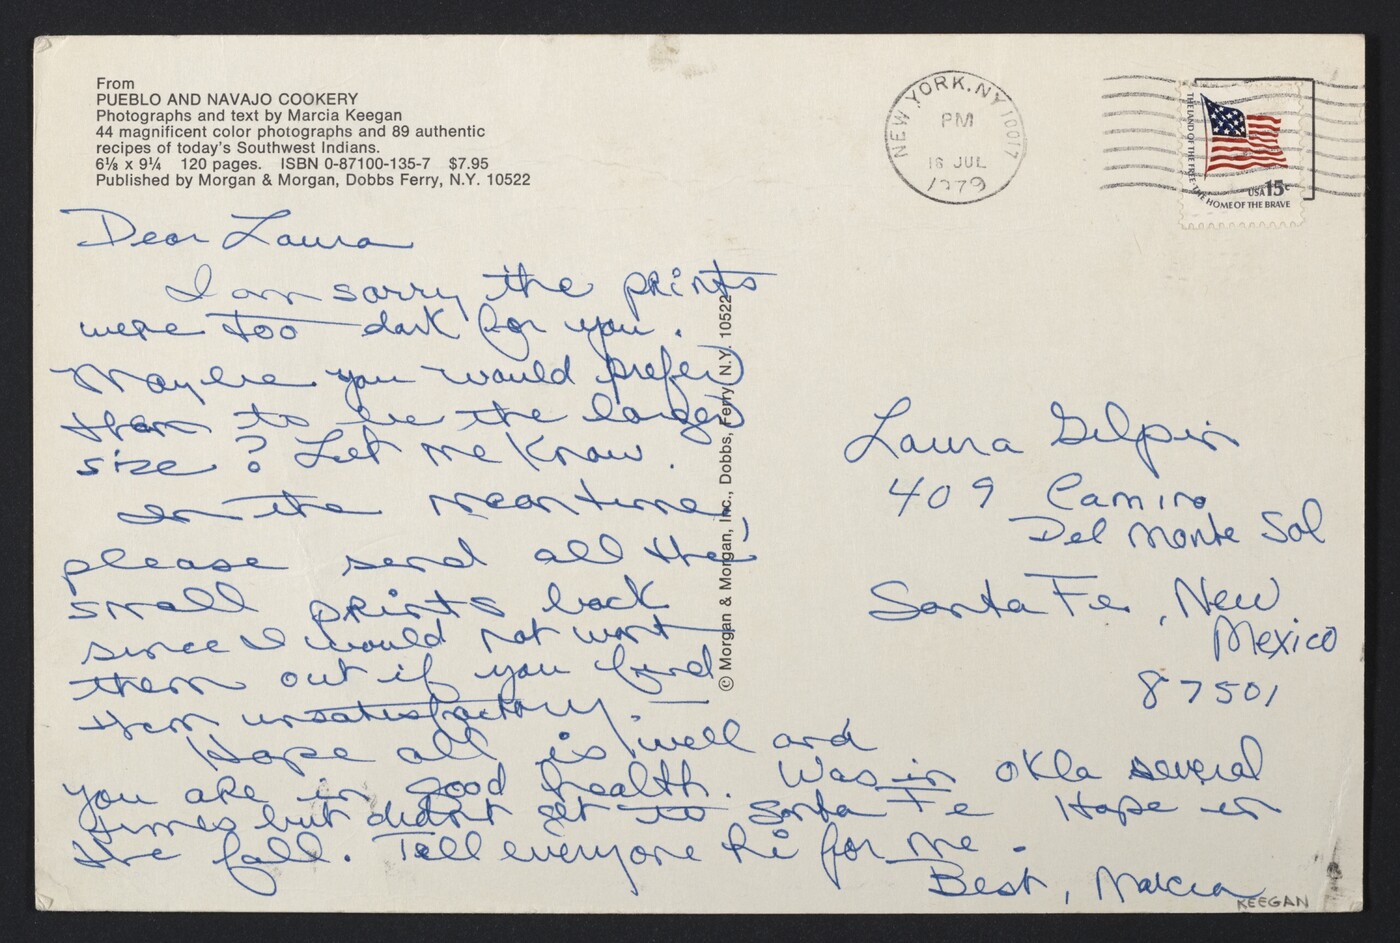 From
PUEBLO AND NAVAJO COOKERY
Photographs and text by Marcia Keegan
44 magnificent color photographs and 89 authentic
recipes of today's Southwest Indians.
6⅛ x 9¼ 120 pages. ISBN 0-87100-135-7 $7.95
Published by Morgan & Morgan, Dobbs Ferry, N.Y. 10522
NEW YORK, NY 10017
PM
16 JUL
1979
THE LAND OF THE FREE · THE HOME OF THE BRAVE
USA 15c
Dear Laura
I am sorry the prints
were too dark for you.
Maybe you would prefer
them to be the larger
size? Let me know.
In the meantime,
please send all the
small prints back
since I would not want
them out if you find
them unsatisfactory.
Hope all is well and
you are in good health. Was in Okla several
times but didn't get to Santa Fe Hope in
the fall. Tell everyone hi for me.
Best, Marcia
KEEGAN
© Morgan & Morgan, Inc., Dobbs, Ferry, N.Y. 10522
Laura Gilpin
409 Camino
Del Monte Sol
Santa Fe, New
Mexico
87501